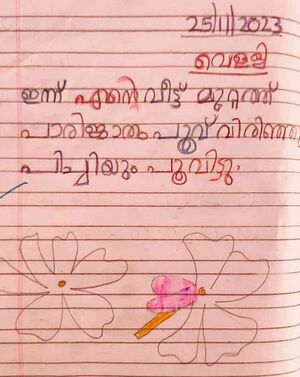 25/11/2023
വെള്ളി
ഇന്ന് എന്റെ വീട്ട് മുറ്റത്ത്
പാരിജാതം പൂവ് വിരിഞ്ഞു
പിച്ചിയും പൂവിട്ടു.